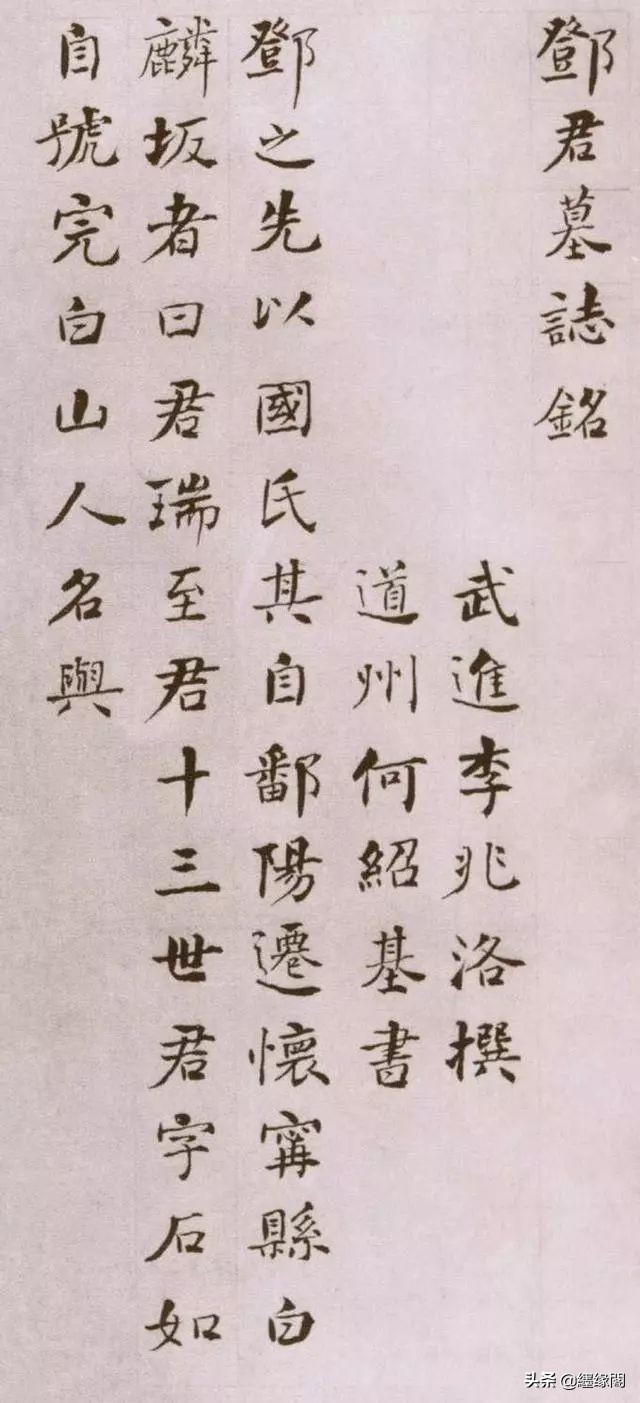 鄧君墓誌銘
武進李兆洛撰
道州何紹基書
鄧之先以國氏其自鄱陽遷懷甯縣白
麟坂者曰君瑞至君十三世君字石如
自號完白山人名與
头条 @纒缘閣